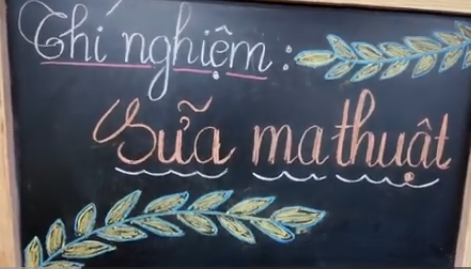 Thí nghiệm:
Sữa ma thuật